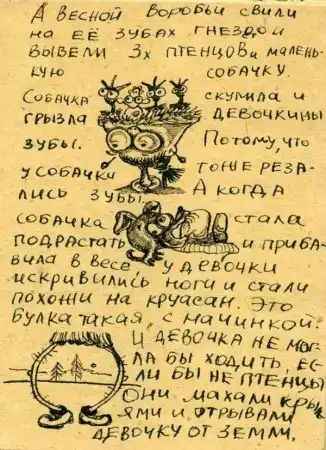 А весной воробьи свили
на её зубах гнездо и
вывели 3х птенцов и малень-
кую собачку.
Собачка скулила и
грызла девочкины
зубы. Потому, что
у собачки тоже реза-
лись зубы. А когда
собачка стала
подрастать и приба-
вила в весе, у девочки
искривились ноги и стали
похожи на круасан. Это
булка такая, с начинкой.
И девочка не мог-
ла бы ходить, ес-
ли бы не птенцы
Они махали крыль-
ями и отрывали
девочку от земли.